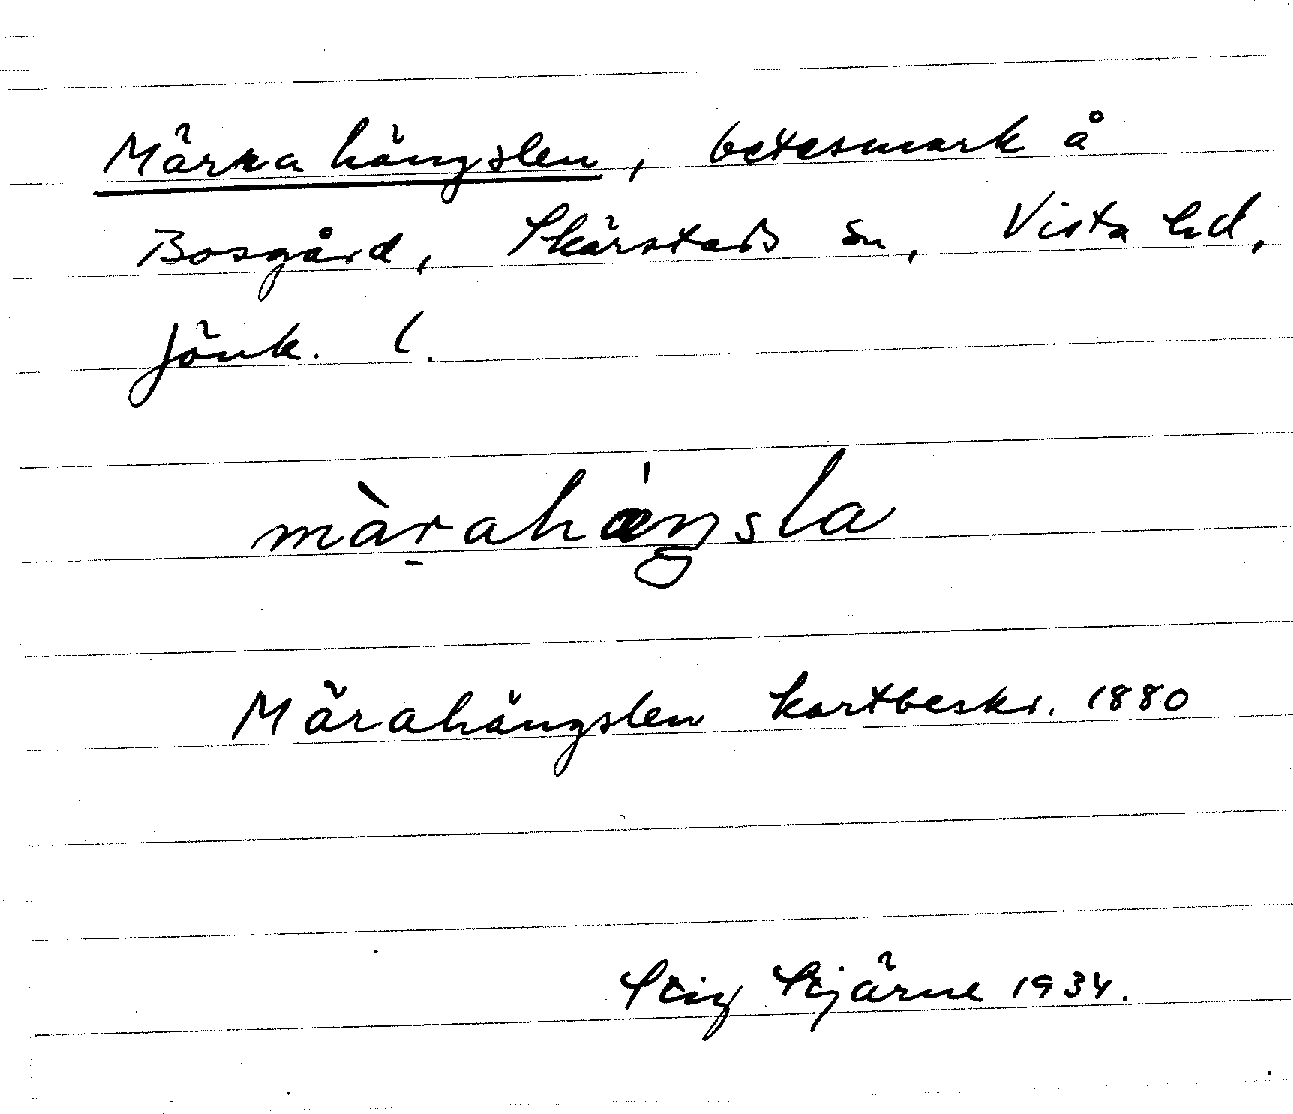 Märrahängslen, betesmark å
Bosgård, Skärstads sn, Vista hd,
Jönk. l.
màr̠ahǽŋsla
Märahängslen kartbeskr. 1880
Stig Stjärne 1934.